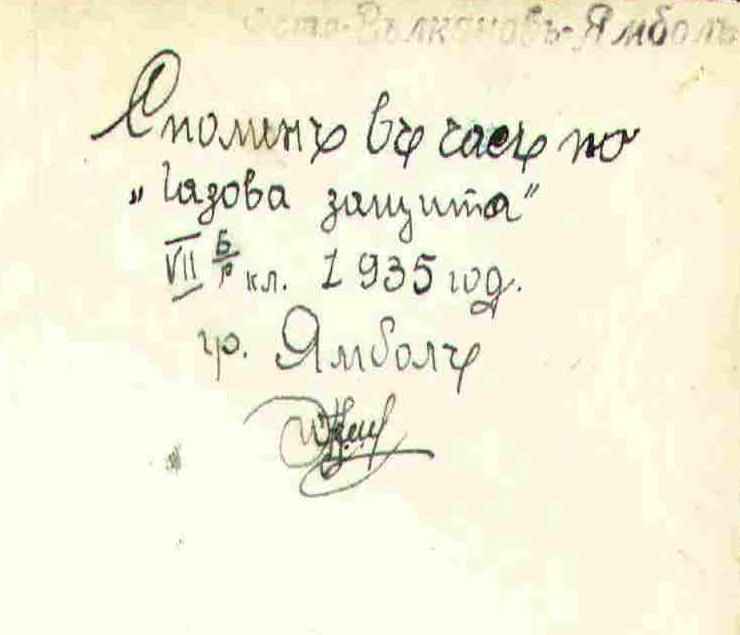 Вълкановъ-Ямболъ
Споменъ въ часъ по
„Газова защита"
VII Б/р кл. 1935 год.
гр. Ямболъ